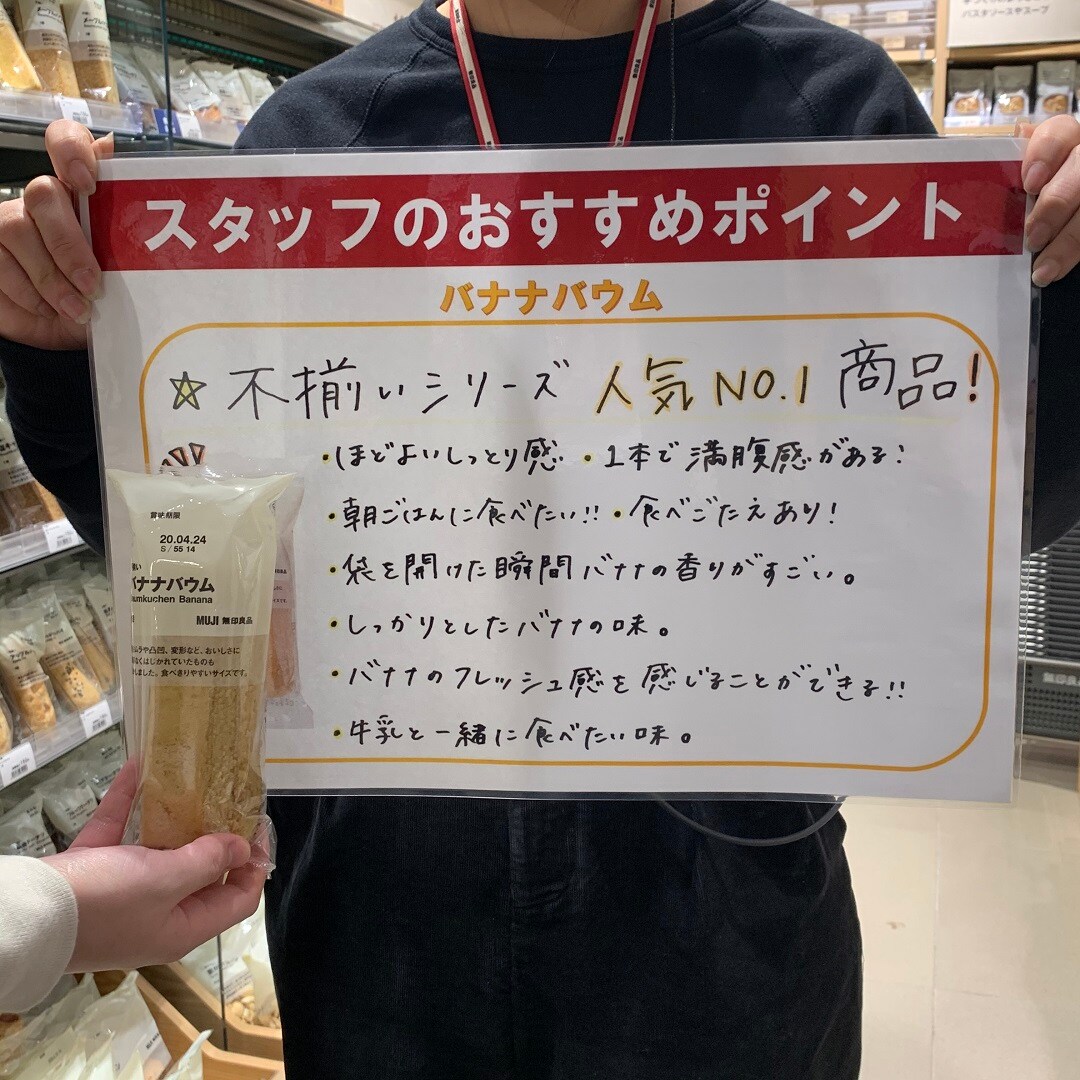 パスタソースやスープ
スタッフのおすすめポイント
バナナバウム
☆ 不揃いシリーズ 人気NO.1 商品!
・ほどよいしっとり感 ・1本で満腹感がある!
・朝ごはんに食べたい!! ・食べごたえあり!
・袋を開けた瞬間バナナの香りがすごい。
・しっかりとしたバナナの味。
・バナナのフレッシュ感を感じることができる!!
・牛乳と一緒に食べたい味。
賞味期限
20.04.24
S/55 14
バナナバウム
umkuchen Banana
MUJI 無印良品
ムラや凸凹、変形など、おいしさに
なくはじかれていたものも
れました。食べきりやすいサイズです。
無印良品